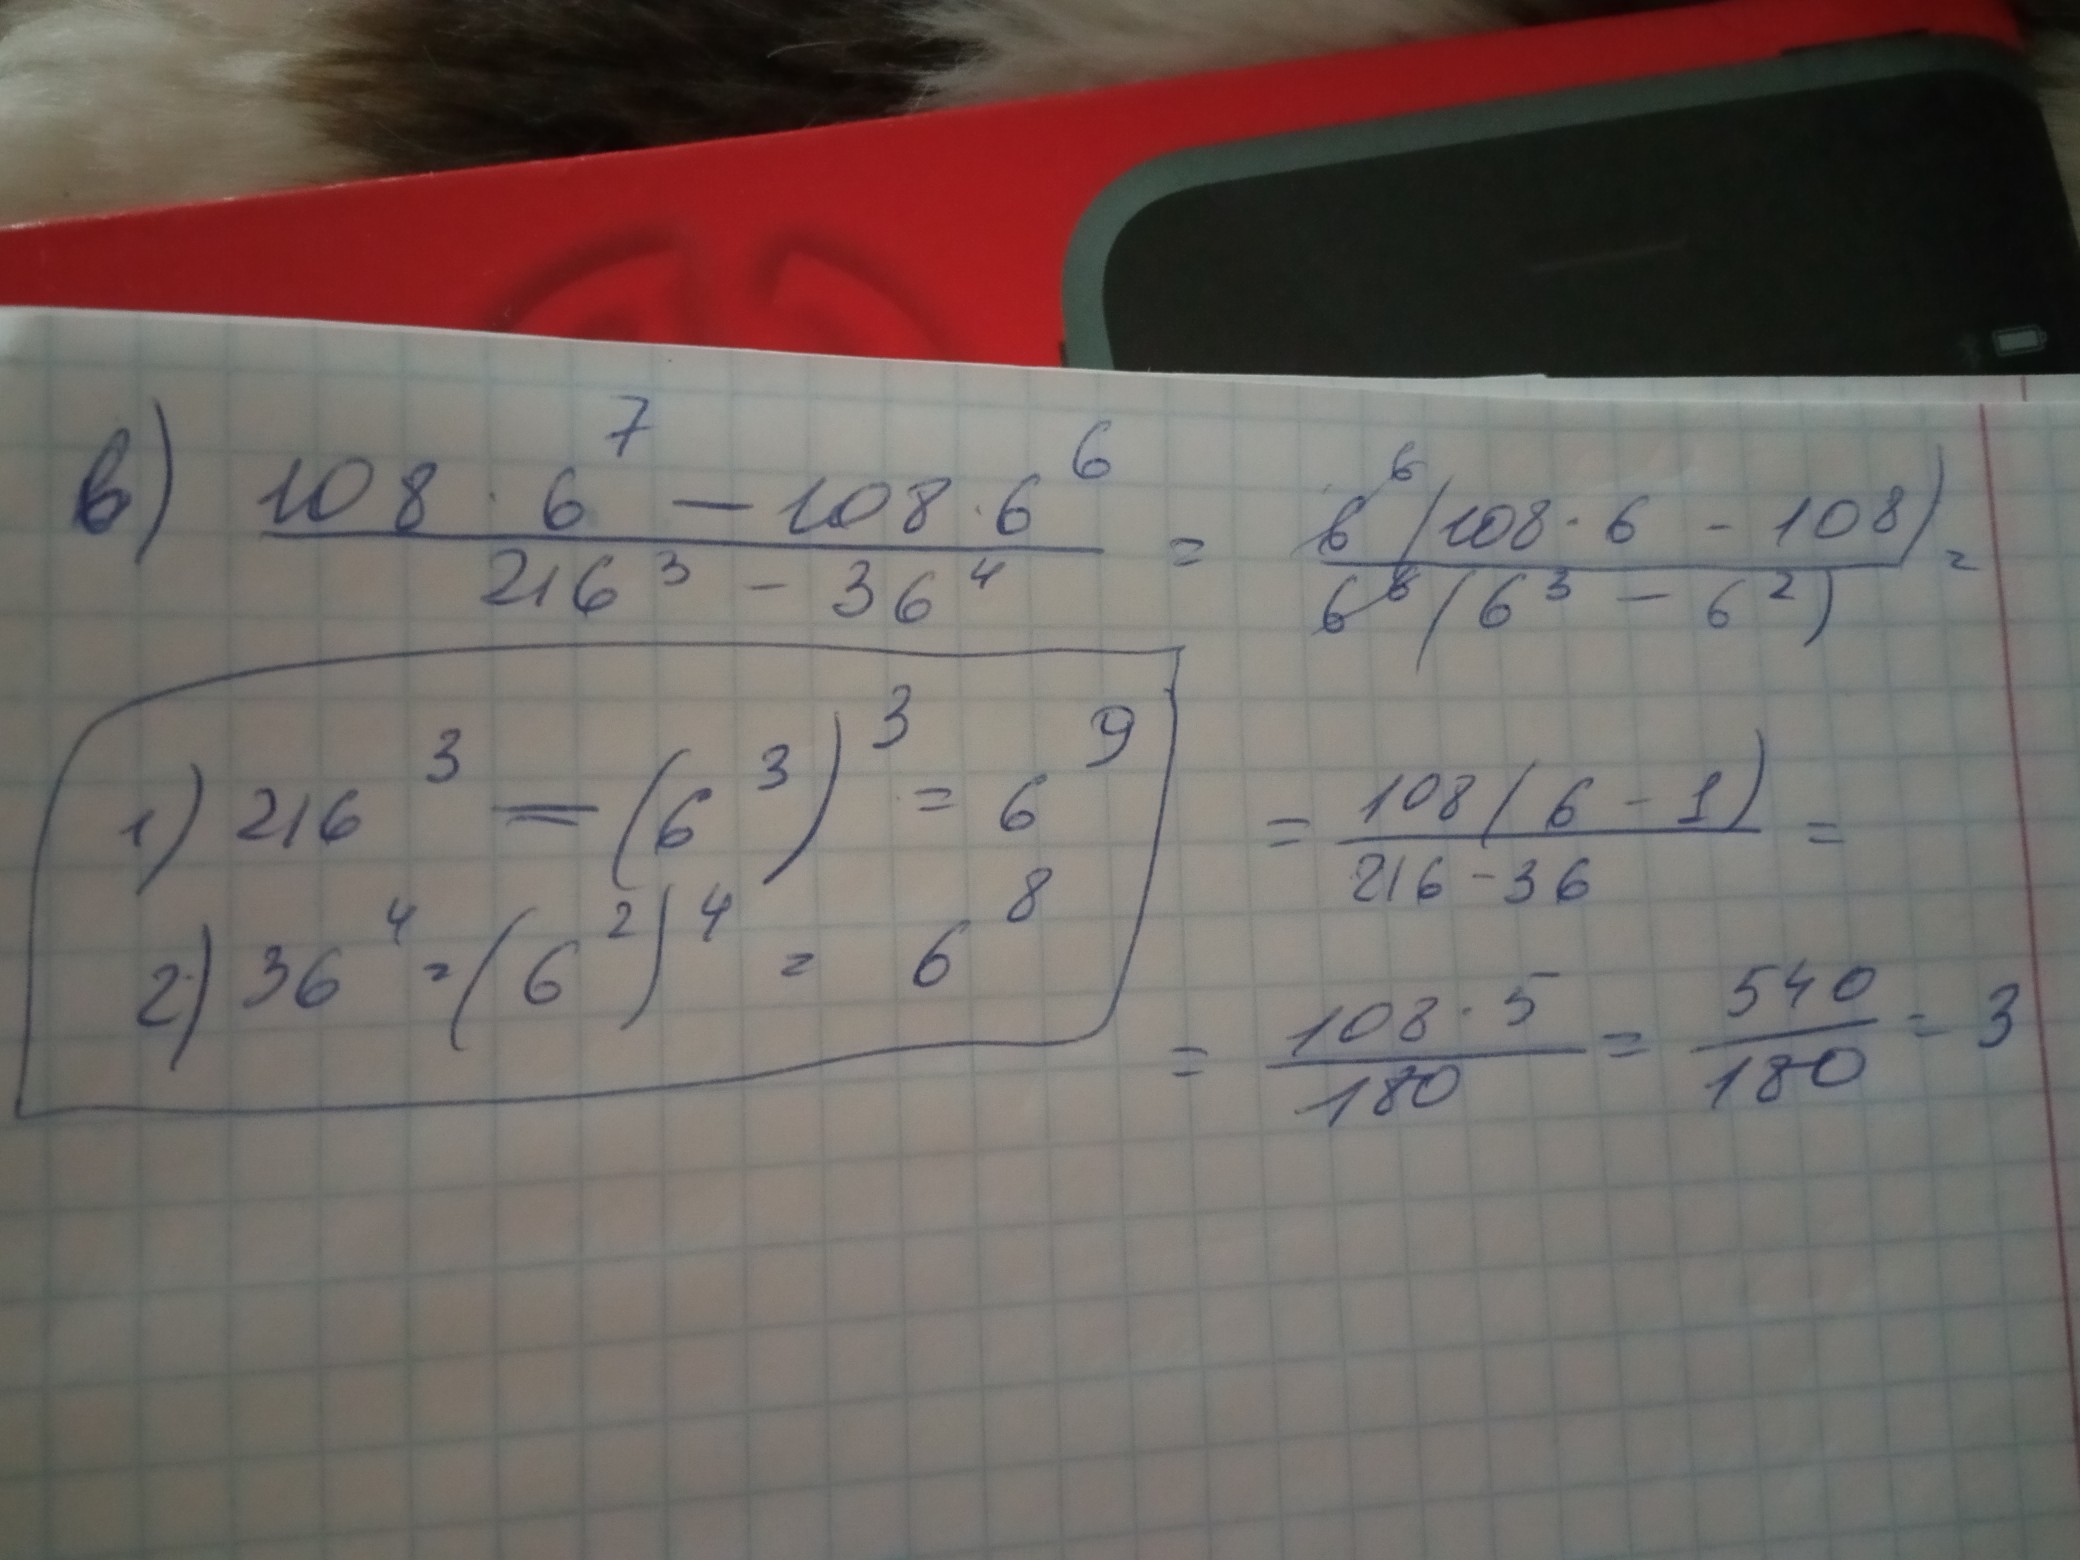 в) (108 · 6^7 − 108 · 6^6) / (216^3 − 36^4) = 6^6 (108 · 6 − 108) / 6^6 (6^3 − 6^2) =
1) 216^3 = (6^3)^3 = 6^9
2) 36^4 = (6^2)^4 = 6^8
= 108 (6 − 1) / (216 − 36) =
= 108 · 5 / 180 = 540 / 180 = 3